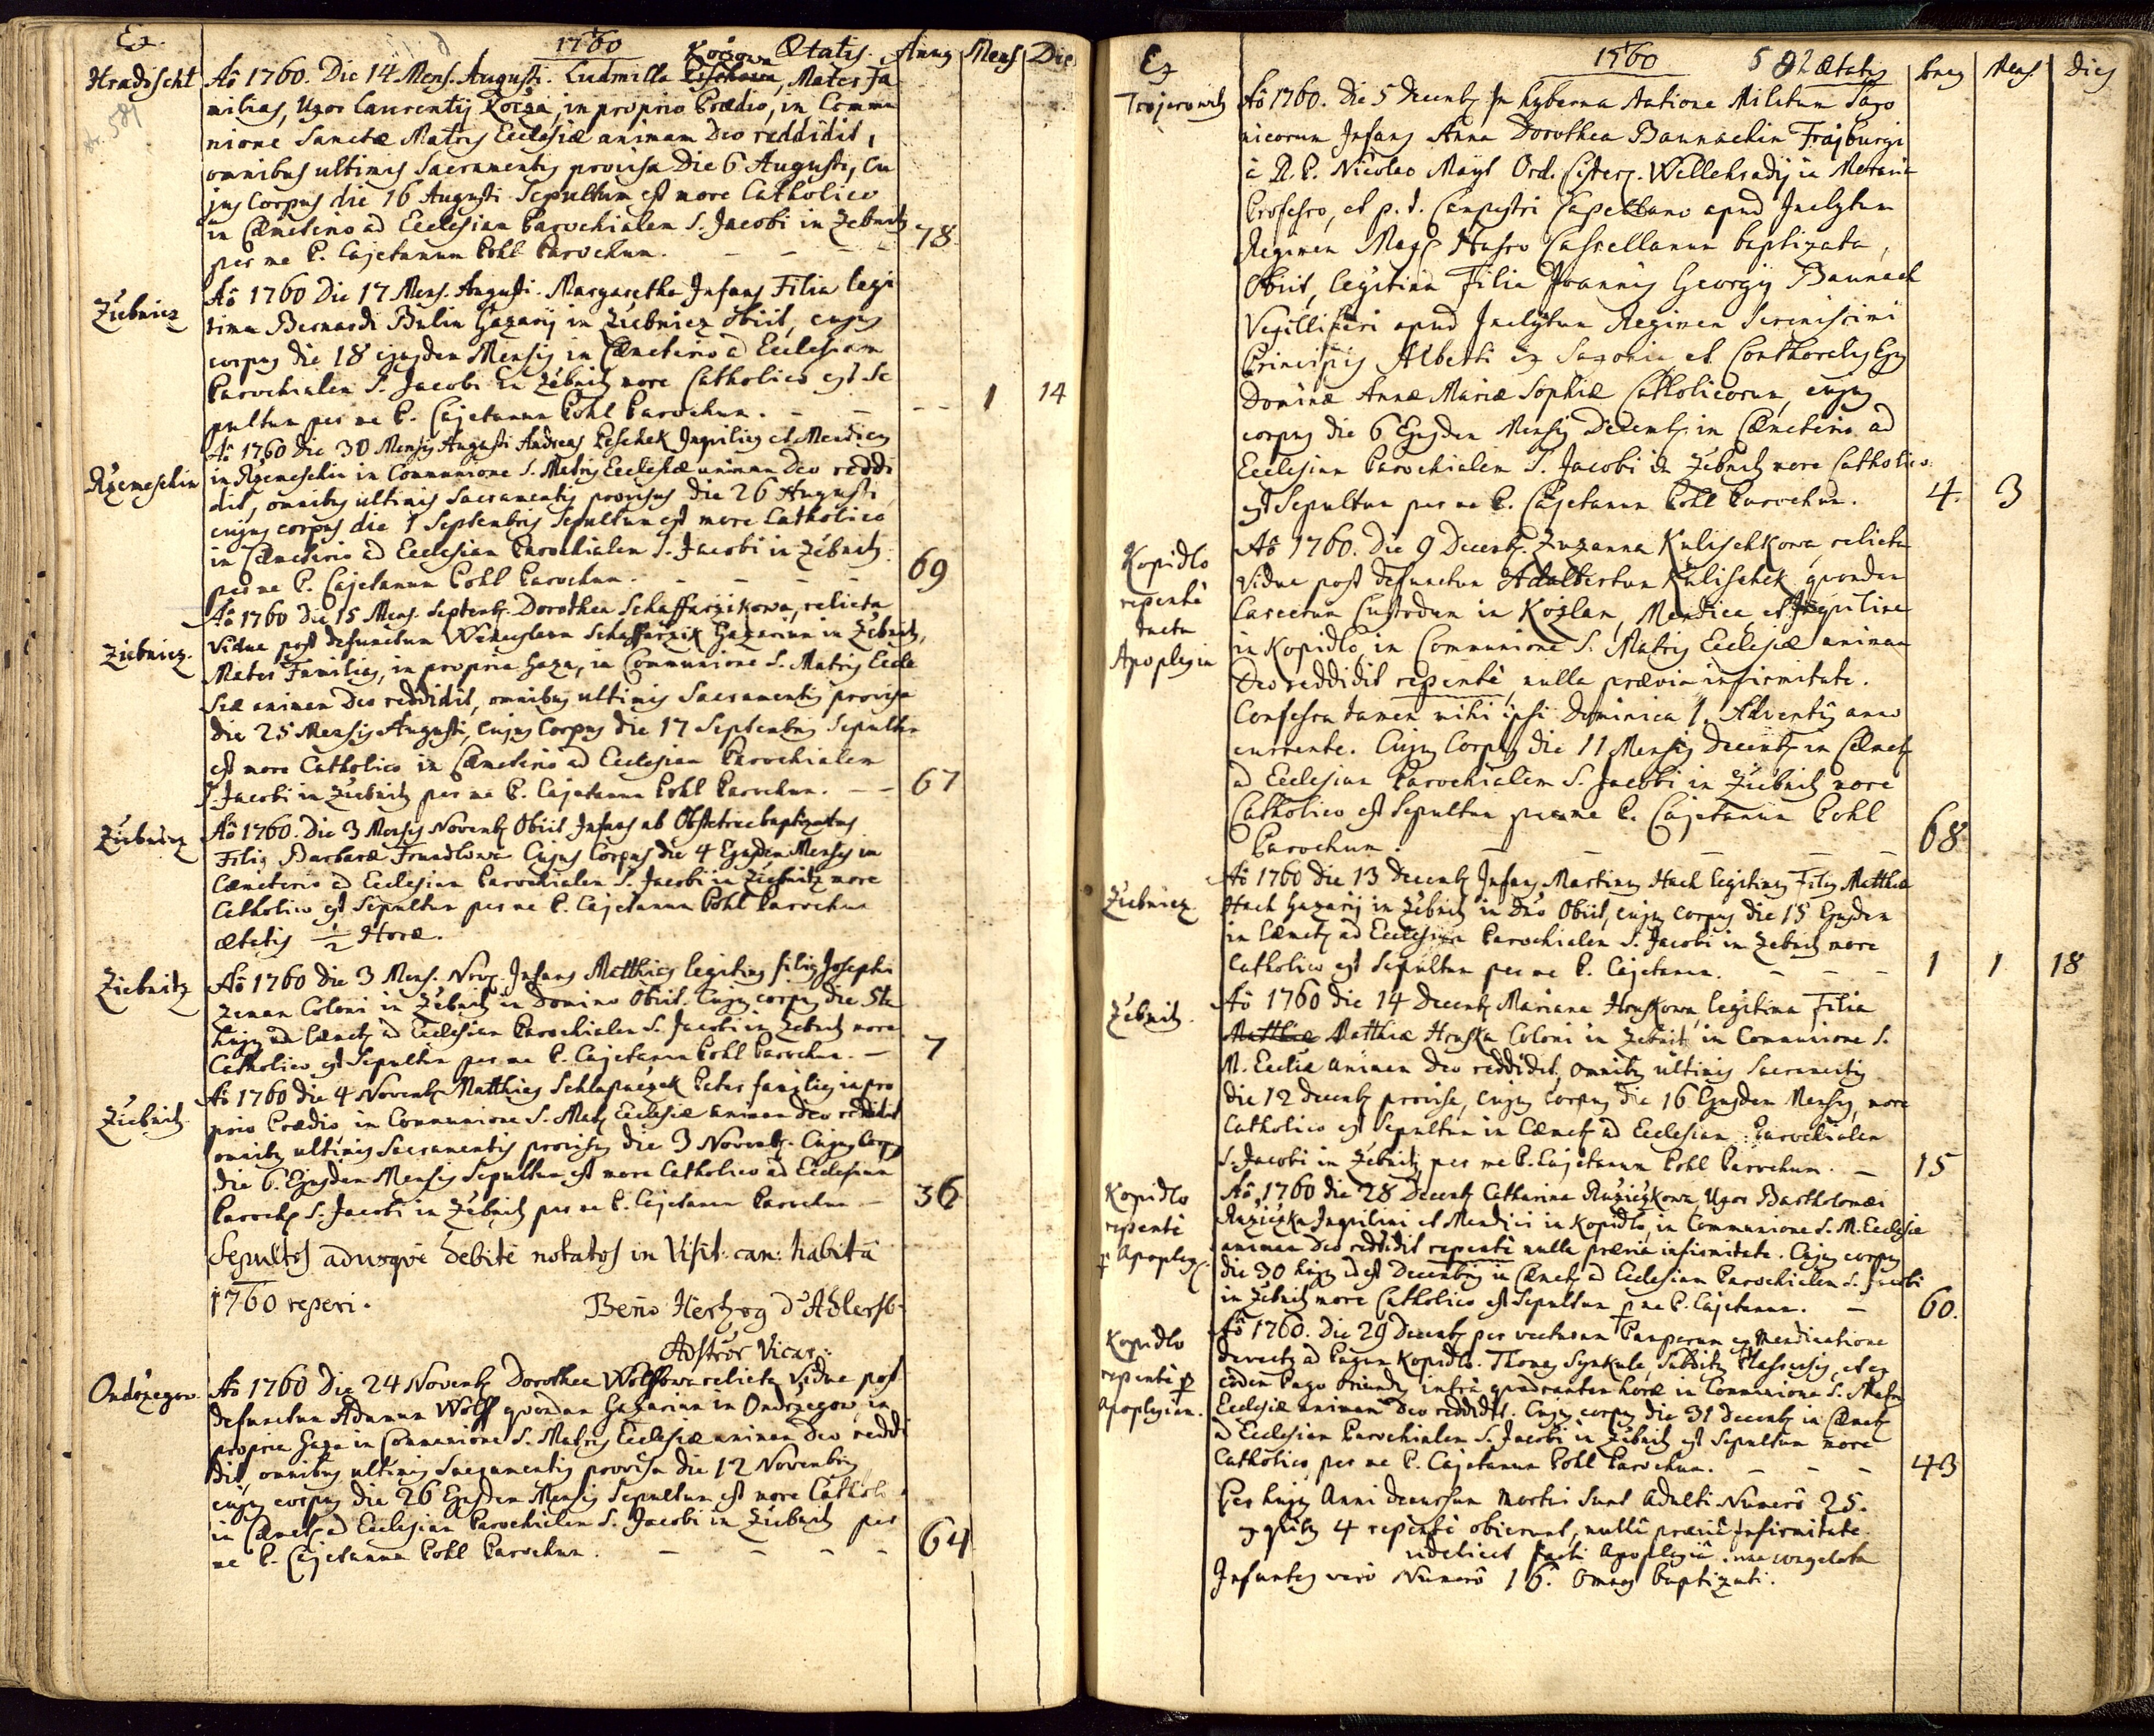 Ex
1760
Koczowa Ætatis. Anny Mens Die
Hradischt
Aô 1760. Die 14 Mens. Augusti. Ludmilla, Mater Fa
milias, Uxor Laurentij Kocza, in proprio Prædio, in Commu
nione Sanctæ Matris Ecclesiæ animam Deo reddidit,
omnibus ultimis Sacramentis provisa Die 6 Augusti, Cu
jus Corpus die 16 Augusti Sepultum est more Catholico
in Cœmeterio ad Ecclesiam Parochialem S. Jacobi in Zebnitz
per me P. Cajetanum Pohl Parochum. - - - 78
Ziebnicz
Aô 1760 Die 17 Mens. Augusti. Margaretha Infans Filia legi
tima Bernardi Bulin Gazarij in Ziebnicz obiit, cujus
corpus die 18 ejusdem Mensis in Cœmeterio ad Ecclesiam
Parochialem S. Jacobi in Zebnitz more Catholico est Se
pultum per me P. Cajetanum Pohl Parochum. - - - 1 14
Rzemeschin
Aô 1760 die 30 Mensis Augusti Andreas Peschek Inquilinus et Mendicus
in Rzemeschin in Communione S. Matris Ecclesiæ animam Deo reddi
dit, omnibus ultimis Sacramentis provisus die 26 Augusti
cujus corpus die 1 Septembris Sepultum est more Catholico
in Cœmeterio ad Ecclesiam Parochialem S. Jacobi in Zebnitz
per me P. Cajetanum Pohl Parochum. - - - - 69
Ziebnicz.
Aô 1760 Die 15 Mens. Septemb. Dorothea Schaffarzikowa, relicta
Vidua post defunctum Wenceslaum Schaffarzik Gazarium in Zebnitz,
Mater Familias, in propria Gaza, in Communione S. Matris Eccle
siæ animam Deo reddidit, omnibus ultimis Sacramentis provisa
die 25 Mensis Augusti, Cujus Corpus die 17 Septembris Sepultum
est more Catholico in Cœmeterio ad Ecclesiam Parochialem
S. Jacobi in Ziebnitz per me P. Cajetanum Pohl Parochum. - - 67
Ziebnicz
Aô 1760. Die 3 Mensis Novemb. Obiit Infans ab Obstetrice baptizatus
Filiꝯ Barbaræ Cujus Corpus die 4 Ejusdem Mensis in
Cœmeterio ad Ecclesiam Parochialem S. Jacobi in Ziebnitz more
Catholico est Sepultum per me P. Cajetanum Pohl Parochum
ætatis 1/2 Horæ.
Ziebnitz
Aô 1760 die 3 Mens. Nov. Infans Matthias legitimus filius Josephi
Zeman Coloni in Zebnitz in Domino Obiit. Cujus corpus die 5ta
hujus ad Cœmet. ad Ecclesiam Parochialem S. Jacobi in Zebnitz more
Catholico est Sepultum per me P. Cajetanum Pohl Parochum. - 7
Ziebnitz
Aô 1760 die 4 Novemb. Matthias Pater familias in pro
prio Prædio in Communione S. Mat. Ecclesiæ animam Deo reddidit
omnibus ultimis Sacramentis provisus die 3 Novemb. Cujus Corpus
die 6. Ejusdem Mensis Sepultum est more Catholico ad Ecclesiam
Paroch. S. Jacobi in Zebnitz per me P. Cajetanum Parochum - 36
Sepultos adusque debitè notatos in Visit: can: habitâ
1760 reperi.
Beno Hertzog d'Adlersb.
Vicar:
Ondrzegow.
Aô 1760 Die 24 Novemb. Dorothea Wolffowa relicta Vidua post
defunctum Adamum Wolff quondam Gazarium in Ondrzegow, in
propria Gaza in Communione S. Matris Ecclesiæ animam Deo reddi
dit, omnibus ultimis Sacramentis provisa die 12 Novembris
cujus corpus die 26 Ejusdem Mensis Sepultum est more Catholi
in Cœmet. ad Ecclesiam Parochialem S. Jacobi in Ziebnitz per
me P. Cajetanum Pohl Parochum. - - - - 64
Ex
1760
Ætatis Anny Mens. Dies
Trojerowitz
Aô 1760. Die 5 Decemb. In hyberna Statione Militum Saxo
nicorum Infans Anna Dorothea Baunachin Frajburgi
à R. P. Nicolao Mayl Ord. Cisterc. Wellehradij in Moravia
Professo, et p. t. Campestri Capellano apud Inclytum
Regimen baptizata,
Obiit, legitima Filia Joannis Georgij Baunach
Vexilliferi apud Inclytum Regimen Serenissimi
Principis Alberti ex Saxonia et
Dominæ Annæ Mariæ Sophiæ Catholicorum, cujus
corpus die 6 Ejusdem Mensis Decemb. in Cœmeterio ad
Ecclesiam Parochialem S. Jacobi in Zebnitz more Catholico
est Sepultum per me P. Cajetanum Pohl Parochum. 4. 3
Kopidlo
repentè
tacta
Apoplexia
Aô 1760. Die 9 Decemb. Zuzanna Kulischkowa, relicta
Vidua post defunctum Adalbertum Kulischek quondam
Carcerum Custodem in Kozlan, Mendica et Inquilina
in Kopidlo in Communione S. Matris Ecclesiæ animam
Deo reddidit repentè, nulla prævia infirmitate.
Confessa tamen mihi ipsi Dominica 1. Adventûs anno
currente. Cujus Corpus die 11 Mensis Decemb. in Cœmet.
ad Ecclesiam Parochialem S. Jacobi in Ziebnitz more
Catholico est Sepultum per me P. Cajetanum Pohl
Parochum. - - - - - 68
Ziebnicz
Aô 1760 die 13 Decemb. Infans Martinus Hach legitimus Filius Matthiæ
Hach Gazarij in Zebnitz in Dno Obiit, cujus corpus die 15 Ejusdem
in Cœmet. ad Ecclesiam Parochialem S. Jacobi in Zebnitz more
Catholico est Sepultum per me P. Cajetanum. - - - 1 1 18
Zebnitz.
Aô 1760 die 14 Decemb. Mariana Hruskowa legitima Filia
Matthiæ Matthiæ Hruska Coloni in Zebnitz in Communione S.
M. Eccliæ animam Deo reddidit, omnibus ultimis Sacramentis
die 12 Decemb. provisa, cujus corpus die 16 Ejusdem Mensis, more
Catholico est Sepultum in Cœmet. ad Ecclesiam Parochialem
S. Jacobi in Zebnitz per me P. Cajetanum Pohl Parochum. - 15
Kopidlo
repentè
Apoplex.
Aô 1760 die 28 Decemb. Catharina Ruziczkowa, Uxor Bartholomæi
Ruziczka Inquilini et Mendici in Kopidlo, in Communione S. M. Ecclesiæ
animam Deo reddidit repentè nulla prævia infirmitate. Cujus corpus
die 30 hujus id est Decembris in Cœmet. ad Ecclesiam Parochialem S. Jacobi
in Zebnitz more Catholico est Sepultum p me P. Cajetanum. - 60.
Kopidlo
repentè p
Apoplexiam.
Aô 1760. Die 29 Decemb. per vecturam Pauperum ex Mendicatione
devectus ad Pagum Kopidlo. Thomas Synkule, Subditus Plassensis, et ex
eodem Pago oriundus infrà quadrantem horæ in Communione S. Matris
Ecclesiæ animam Deo reddidit. Cujus corpus die 31 Decemb. in Cœmet.
ad Ecclesiam Parochialem S. Jacobi in Zebnitz est Sepultum more
Catholico, per me P. Cajetanum Pohl Parochum. - - - 43
Per hujus Anni decursum mortui sunt Adulti Numerô 25.
ex quibus 4 repentè obierunt, nullâ præviâ infirmitate.
videlicet tacti Apoplexiâ. una congelata
Infantes verò Numerô 16. Omnes baptizati.